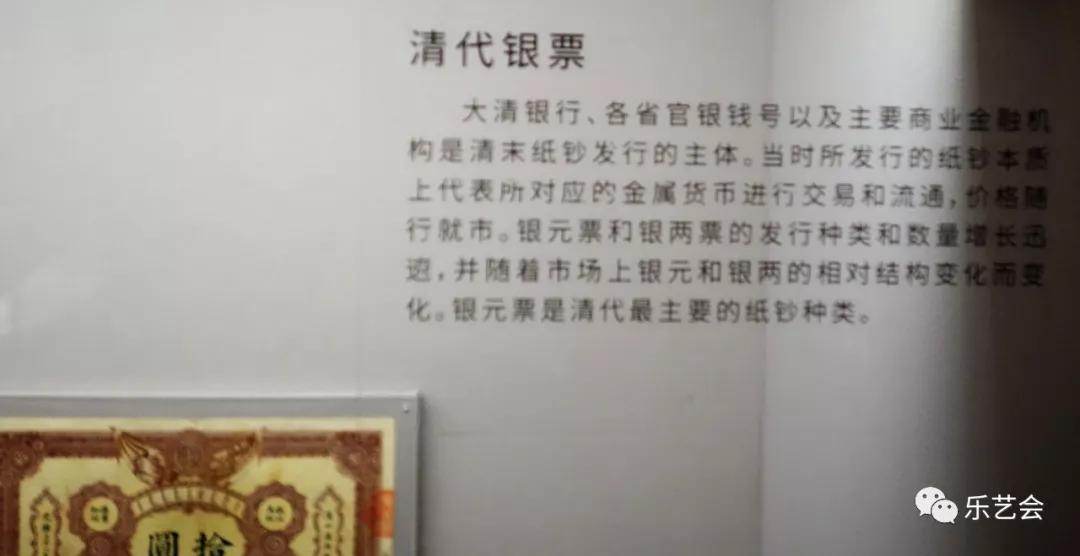 清代银票
大清银行、各省官银钱号以及主要商业金融机
构是清末纸钞发行的主体。当时所发行的纸钞本质
上代表所对应的金属货币进行交易和流通,价格随
行就市。银元票和银两票的发行种类和数量增长迅
速,并随着市场上银元和银两的相对结构变化而变
化。银元票是清代最主要的纸钞种类。
圓拾
乐艺会